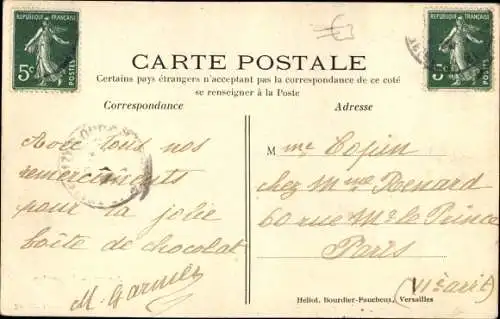 RÉPUBLIQUE FRANÇAISE
5c
POSTES
RÉPUBLIQUE FRANÇAISE
5c
POSTES
CARTE POSTALE
Certains pays étrangers n'acceptent pas la correspondance de ce coté
se renseigner à la Poste
Correspondance
Adresse
Avec tous nos
remerciments
pour la jolie
boîte de chocolat
M. Garnier
Mme
chez Mme Renard
60 rue Mr le Prince
Paris
(VIe arrt)
Héliot. Bourdier-Faucheux, Versailles